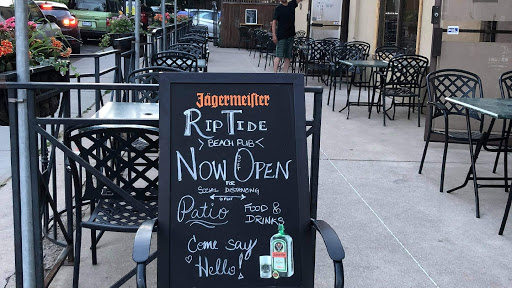 Jägermeister
RIP TIDE
> BEACH PUB <
NOW OPEN
FOR
SOCIAL DISTANCING
6 FEET
Patio FOOD &
DRINKS
Come say
Hello!